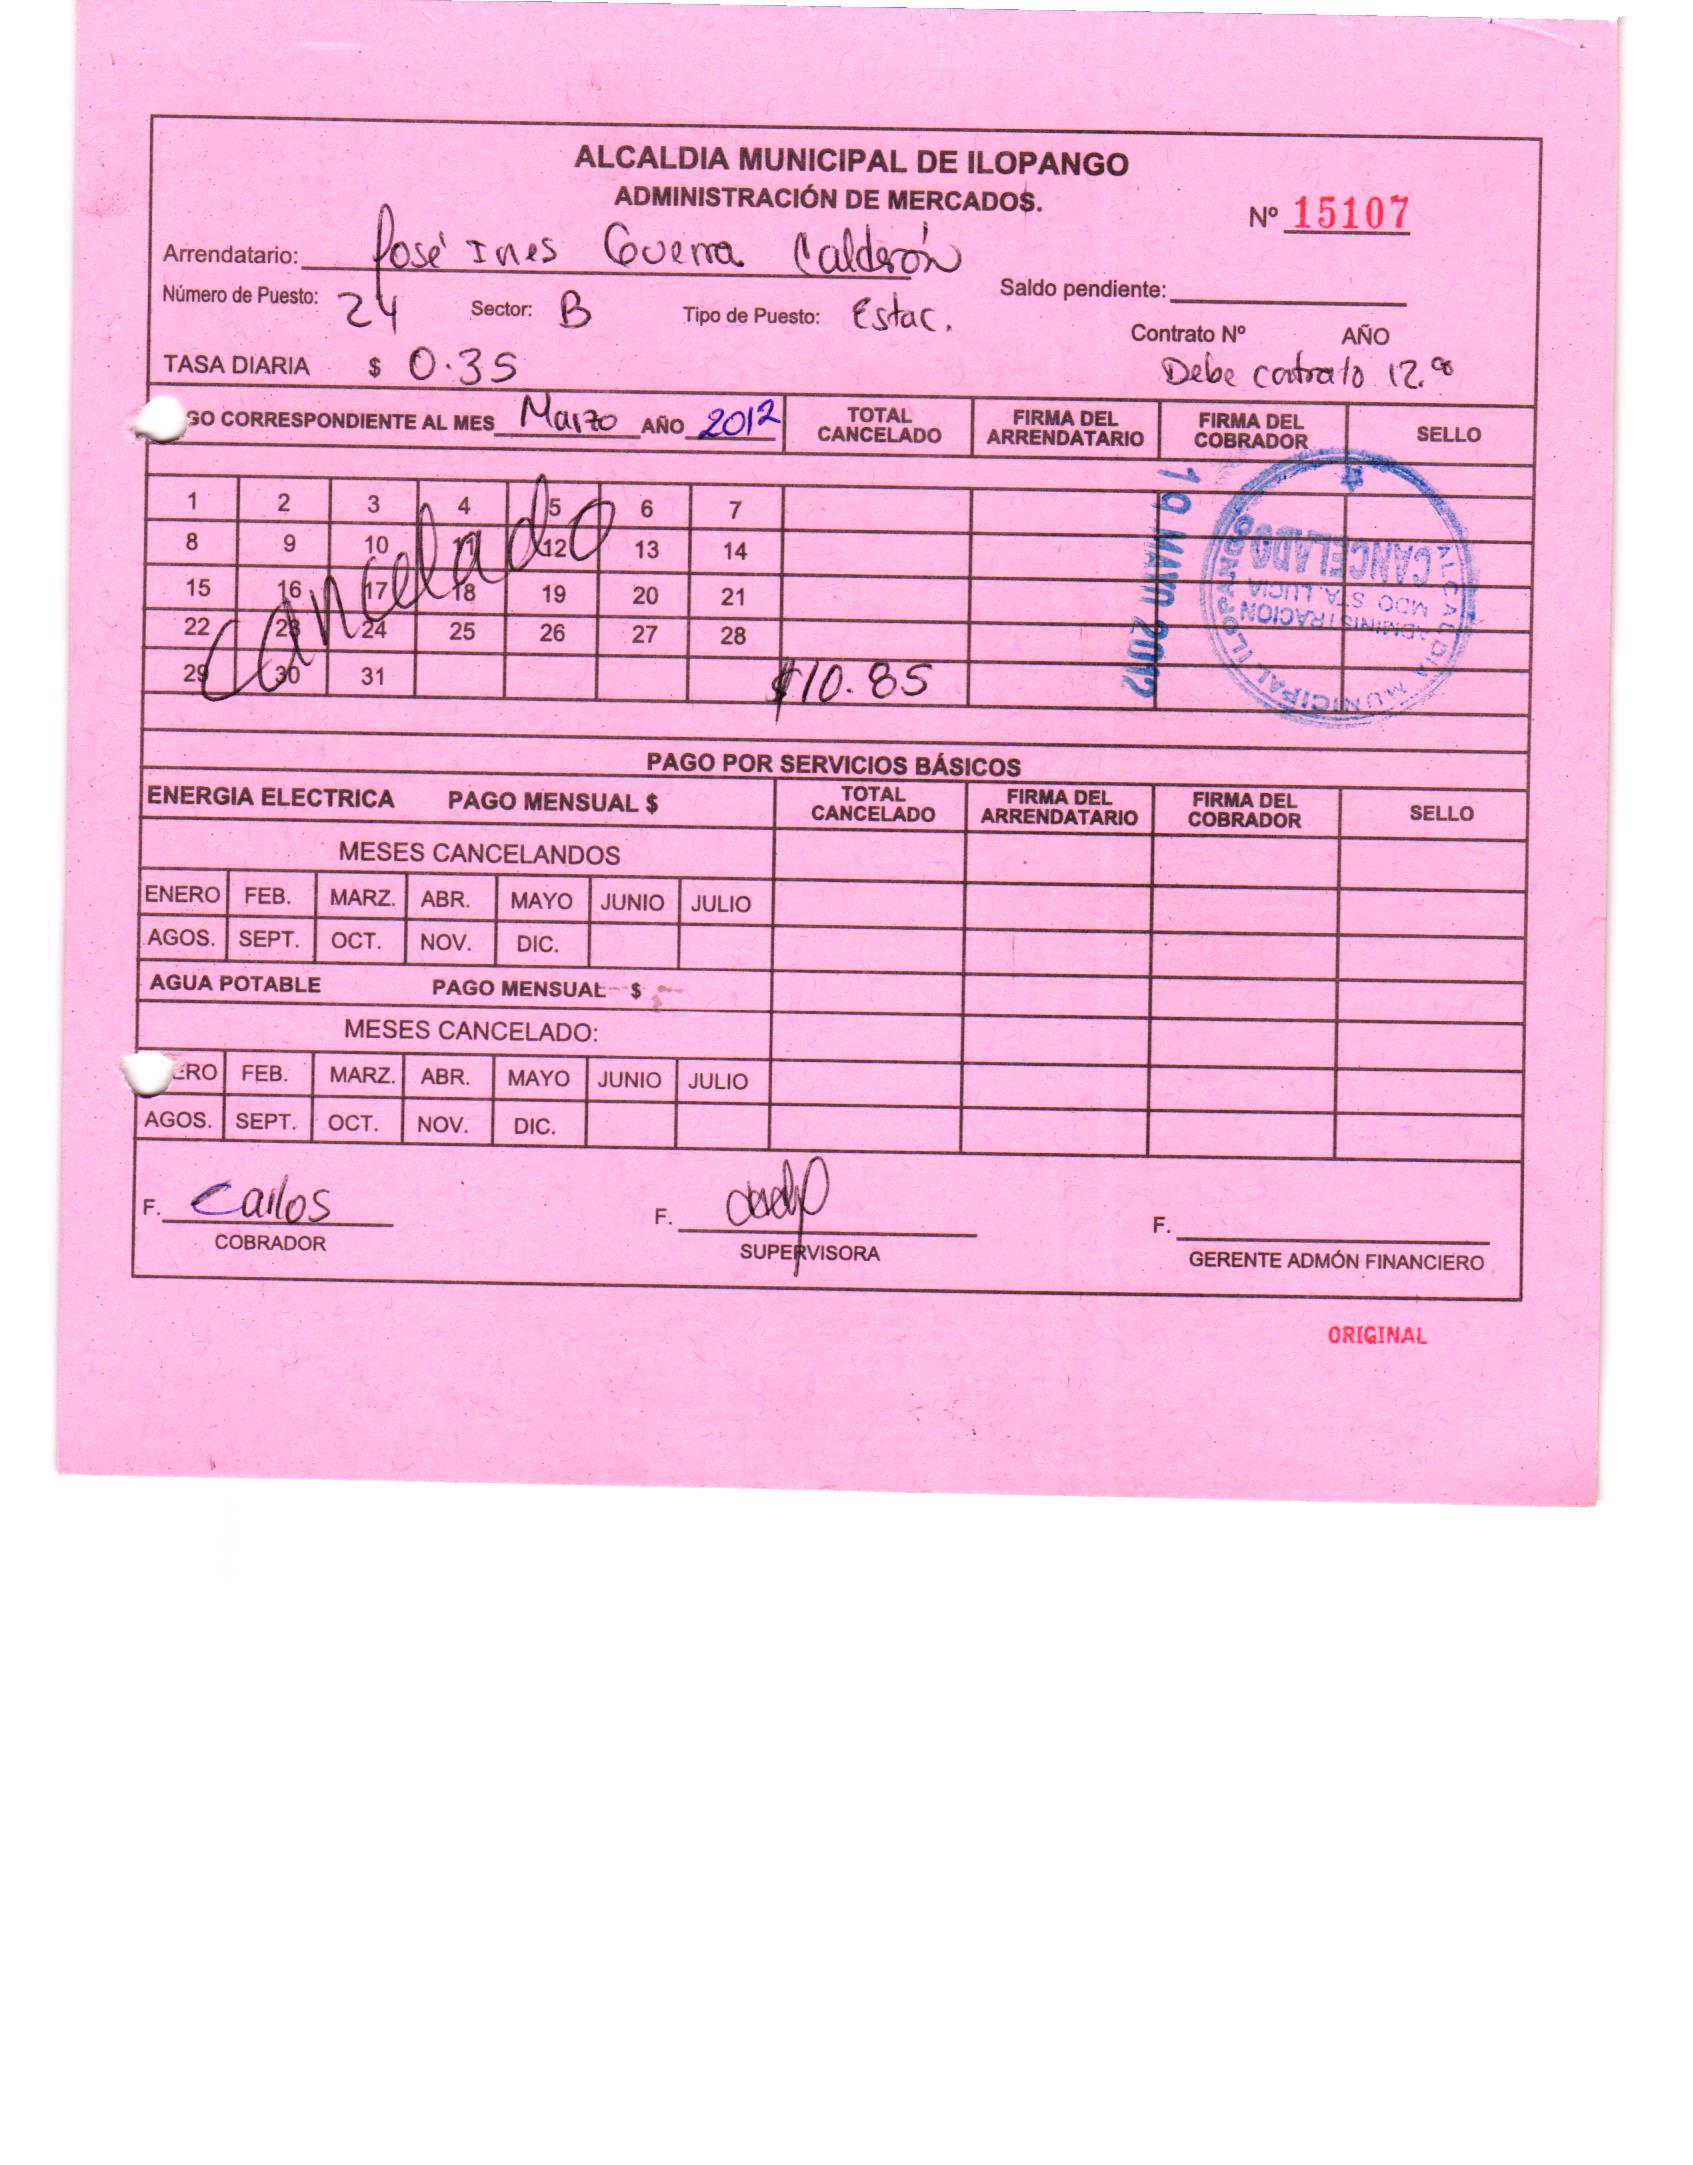 ALCALDIA MUNICIPAL DE ILOPANGO
ADMINISTRACIÓN DE MERCADOS.
Nº 15107
Arrendatario: José Ines Guerra Calderón
Saldo pendiente:
Número de Puesto: 24 Sector: B Tipo de Puesto: Estac.
Contrato Nº AÑO
TASA DIARIA $ 0.35
Debe contrato 12.00
GO CORRESPONDIENTE AL MES Marzo AÑO 2012 TOTAL CANCELADO FIRMA DEL ARRENDATARIO FIRMA DEL COBRADOR SELLO
1 2 3 4 5 6 7
8 9 10 11 12 13 14
15 16 17 18 19 20 21
22 23 24 25 26 27 28
29 30 31 $10.85
Cancelado
MAYO 2012
ALCALDIA MUNICIPAL ILOPANGO
ADMINISTRACION
MDO STA. LUCIA
CANCELADO
PAGO POR SERVICIOS BÁSICOS
ENERGIA ELECTRICA PAGO MENSUAL $ TOTAL CANCELADO FIRMA DEL ARRENDATARIO FIRMA DEL COBRADOR SELLO
MESES CANCELANDOS
ENERO FEB. MARZ. ABR. MAYO JUNIO JULIO
AGOS. SEPT. OCT. NOV. DIC.
AGUA POTABLE PAGO MENSUAL $
MESES CANCELADO:
ERO FEB. MARZ. ABR. MAYO JUNIO JULIO
AGOS. SEPT. OCT. NOV. DIC.
F. Carlos F. F.
COBRADOR SUPERVISORA GERENTE ADMÓN FINANCIERO
ORIGINAL